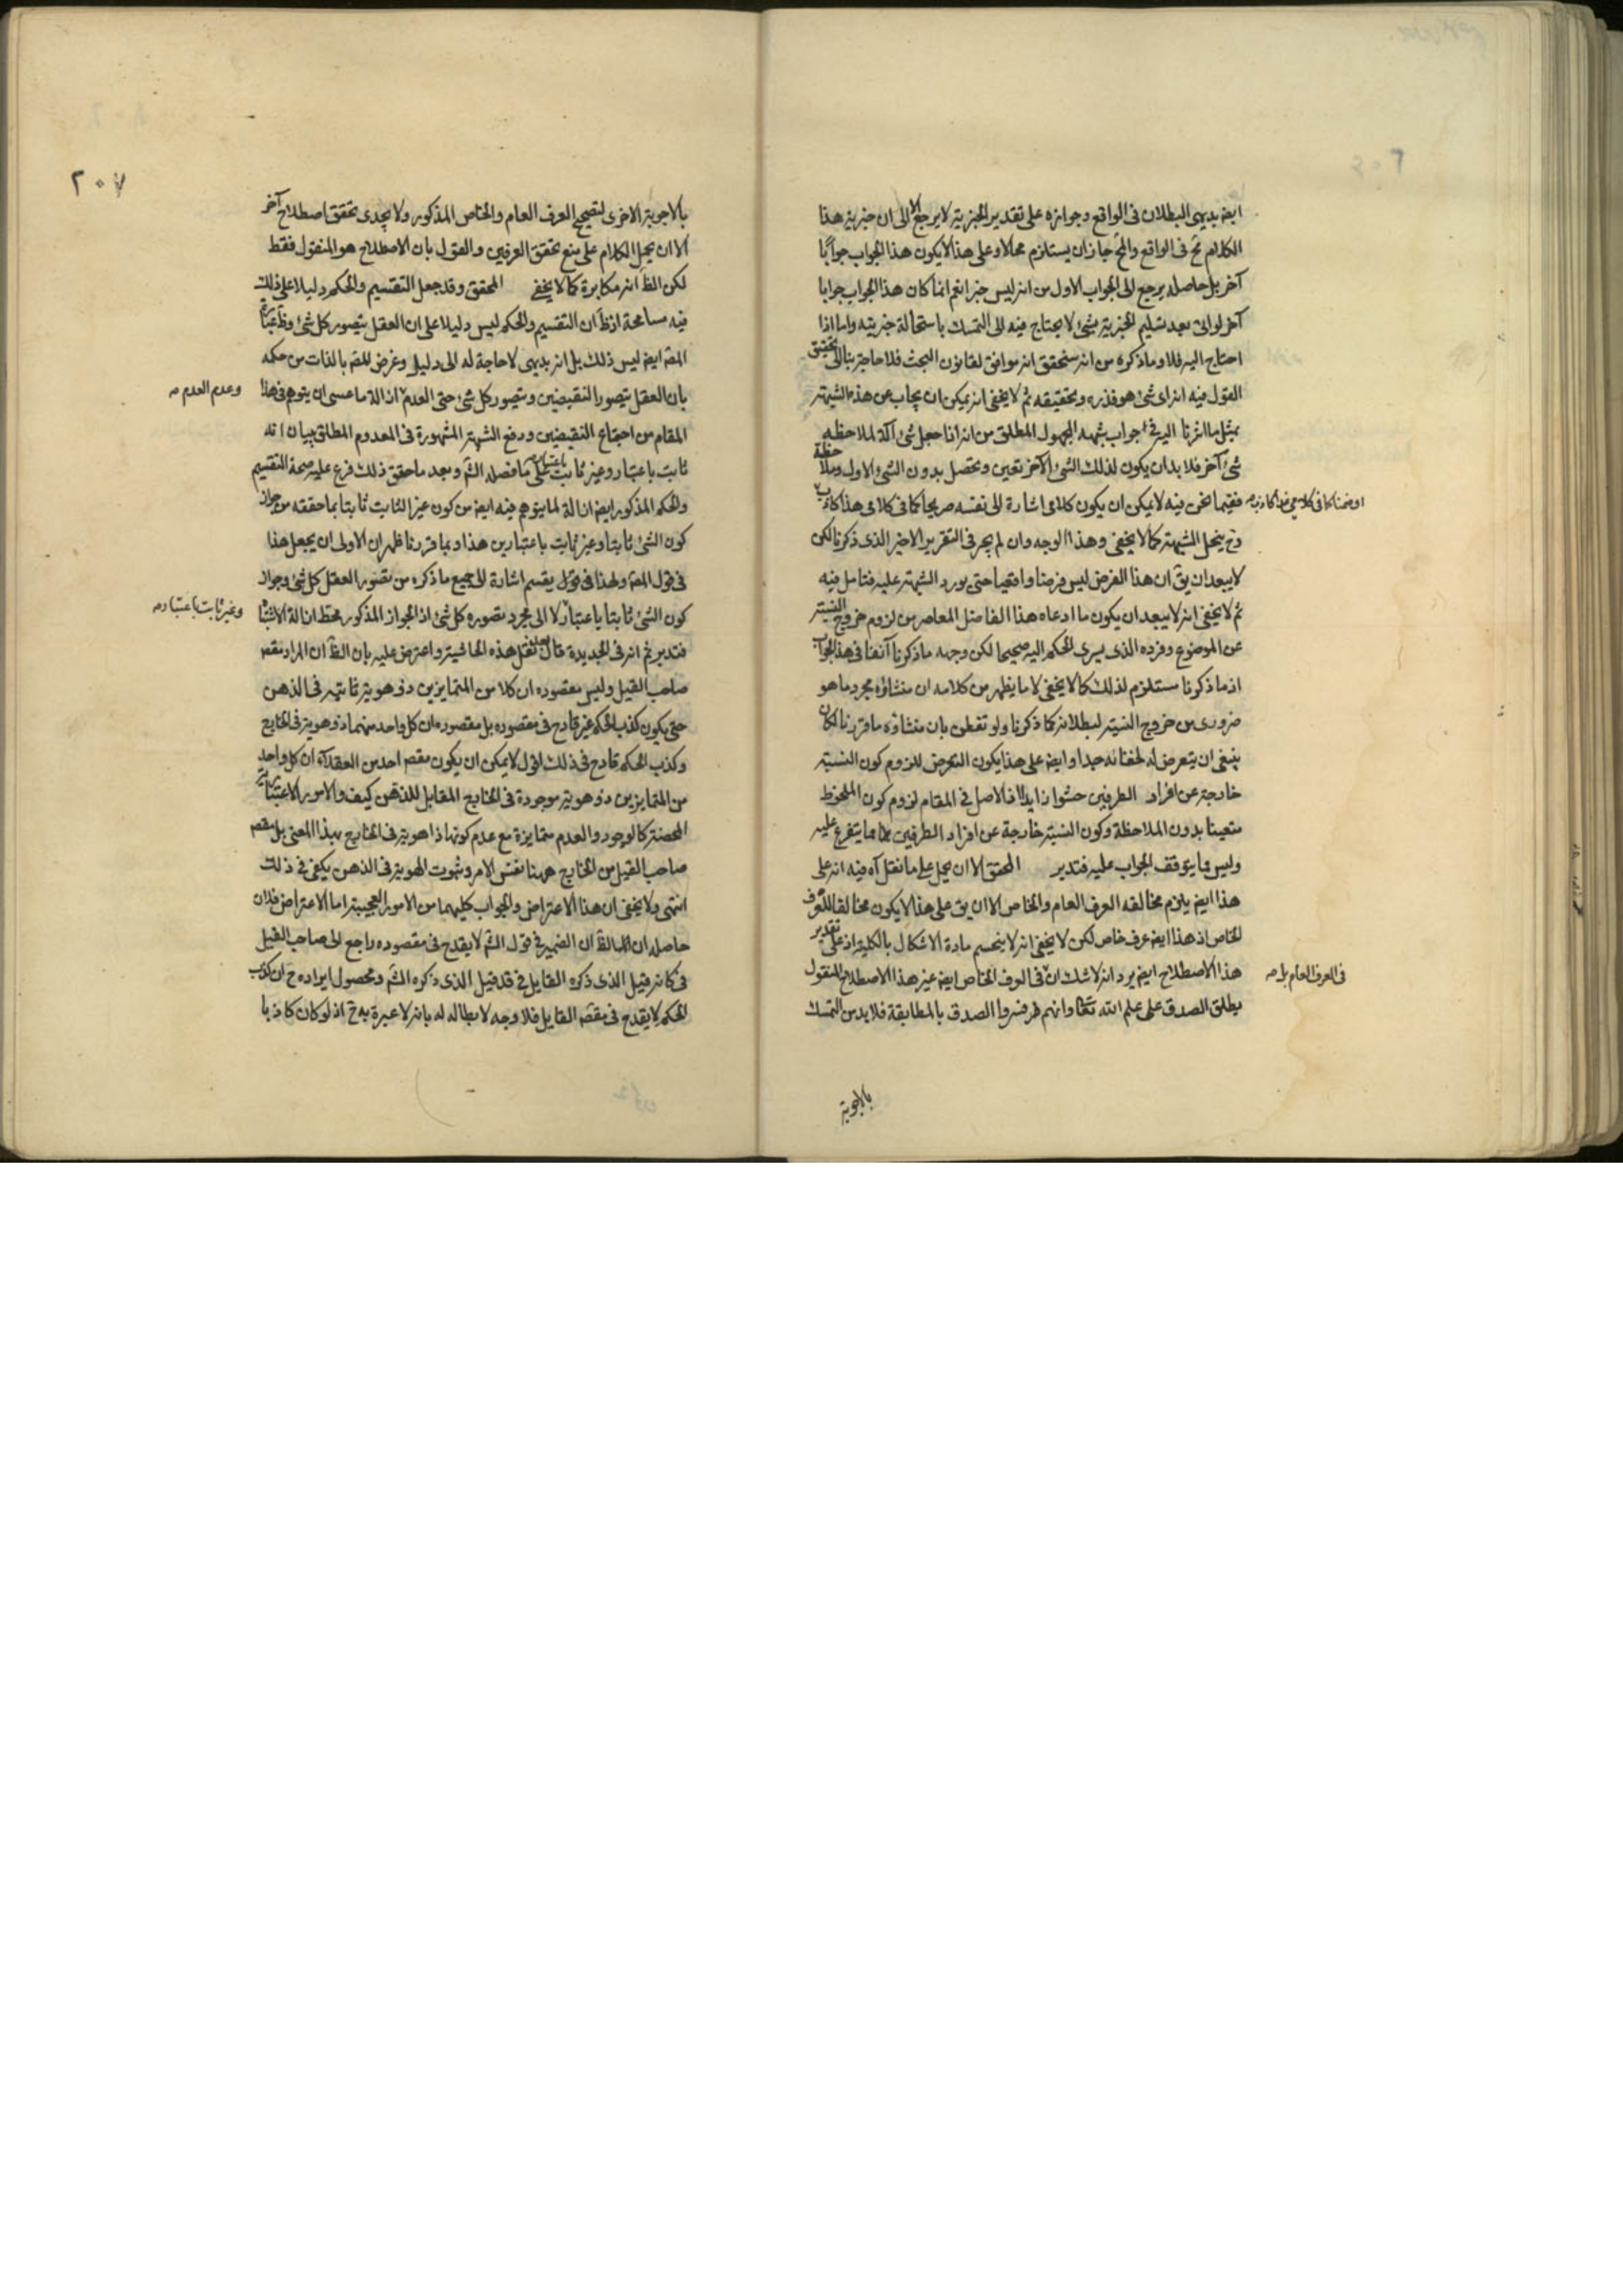 ايض بديهى البطلان فى الواقع وجوازه على تقدير الخبرية لا يرجع الا الى ان خبرية هذا
الكلام مح فى الواقع والمح جاز ان يستلزم محالا وعلى هذا لا يكون هذا الجواب جوابا
آخر بل حاصله يرجع الى الجواب الاول من انه ليس خبرا نعم انما كان هذا الجواب جوابا
آخر لو اتى بعد تسليم الخبرية بشئ لا يحتاج فيه الى التمسك باستحالة خبريته واما اذا
احتاج اليه فلا وما ذكره من انه سنحقق انه موافق لقانون البحث فلا حاجة بنا الى تحقيق
القول فيه انه اى شئ هو فذره وتحقيقه ثم لا يخفى انه يمكن ان يجاب عن هذه الشبهة
بمثل ما اشرنا اليه فى جواب شبهة المجهول المطلق من انه اذا جعل شئ آلة لملاحظة
شئ آخر فلا بد ان يكون لذلك الشئ الآخر تعين وتحصل بدون الشئ الاول وملاحظة
ففيما نحن فيه لا يمكن ان يكون كلامى اشارة الى نفسه صريحا كما فى كلامى هذا كاذب
او ضمنا كما فى كلامى
وح ينحل الشبهة كما لا يخفى وهذا الوجه وان لم يجر فى التقرير الاخير الذى ذكرنا لكن
لا يبعد ان يق ان هذا الفرض ليس فرضا واقعيا حتى يورد الشبهة عليه فتامل فيه
ثم لا يخفى انه لا يبعد ان يكون ما ادعاه هذا الفاضل المعاصر من لزوم خروج النسبة
عن الموضوع وفرده الذى يسرى الحكم اليه صحيحا لكن وجهه ما ذكرنا آنفا فى هذا الجواب
اذ ما ذكرنا مستلزم لذلك كما لا يخفى لا ما يظهر من كلامه ان منشاؤه مجرد ما هو
ضرورى من خروج النسبة لبطلانه كما ذكرنا ولو تفطن بان منشاؤه ما قررنا لكان
ينبغى ان يتعرض له لخفائه جدا وايض على هذا يكون التعرض للزوم كون النسبة
خارجة عن افراد الطرفين حشوا زايدا اذ الاصل فى المقام لزوم كون الملحوظ
متعينا بدون الملاحظة وكون النسبة خارجة عن افراد الطرفين مما يتفرع عليه
وليس مما يتوقف الجواب عليه فتدبر المحقق الا ان يحمل على ما نقل آه فيه انه على
هذا ايض يلزم مخالفه العرف العام والخاص الا ان يق على هذا لا يكون مخالفا للعرف
الخاص اذ هذا ايض عرف خاص لكن لا يخفى انه لا ينحسم مادة الاشكال بالكلية اذ على تقدير
هذا الاصطلاح ايض يرد انه لا شك ان فى العرف الخاص ايض غير هذا الاصطلاح المنقول
فى العرف العام بل صه
يطلق الصدق على علم الله تعالى وانهم فسروا الصدق بالمطابقة فلا بد من التمسك
بالاجوبة
٢٠٧
بالاجوبة الاخرى لتصحيح العرف العام والخاص المذكور ولا يجدى تحقق اصطلاح آخر
الا ان يحمل الكلام على منع تحقق العرفين والقول بان الاصطلاح هو المنقول فقط
لكن الظ انه مكابرة كما لا يخفى المحقق وقد جعل التقسيم والحكم دليلا على ذلك
فيه مسامحة اذ ظ ان التقسيم والحكم ليس دليلا على ان العقل يتصور كل شئ
المص ايض ليس ذلك بل انه بديهى لا حاجة له الى دليل وغرض المص بالذات من حكمه
بان العقل يتصور النقيضين ويتصور كل شئ حتى العدم ازالة ما عسى ان يتوهم فى هذا
وعدم العدم صه
المقام من اجتماع النقيضين ودفع الشبهة المشهورة فى المعدوم المطلق ببيان انه
ثابت باعتبار وغير ثابت باعتبار على ما فصله الش وبعد ما حقق ذلك فرع عليه صحة التقسيم
والحكم المذكور ايض ازالة لما يتوهم فيه ايض من كون غير الثابت ثابتا بما حققه من جواز
كون الشئ ثابتا وغير ثابت باعتبارين هذا وبما قررنا ظهر ان الاولى ان يجعل هذا
فى قول المص ولهذا فى قوله يقسم اشارة الى جميع ما ذكره من تصور العقل كل شئ وجواز
كون الشئ ثابتا باعتبار لا الى مجرد تصوره كل شئ اذ الجواز المذكور محط ازالة الاشتباه
وغير ثابت باعتبار صه
فتدبر ثم انه فى الجديدة قال بعد نقل هذه الحاشية واعترض عليه بان الظ ان المراد بمقصد
صاحب القيل وليس مقصوده ان كلا من المتمايزين ذو هوية ثابتة فى الذهن
حتى يكون كذب الحكم غير قادح فى مقصوده بل مقصوده ان كل واحد منهما ذو هوية فى الخارج
وكذب الحكم قادح فى ذلك اقول لا يمكن ان يكون مقصد احد من العقلاء ان كل واحد
من المتمايزين ذو هوية موجودة فى الخارج المقابل للذهن كيف والامور الاعتبارية
المحضة كالوجود والعدم متمايزة مع عدم كونها ذا هوية فى الخارج بهذا المعنى بل مقصد
صاحب القيل من الخارج ههنا نفس الامر وثبوت الهوية فى الذهن يكفى فى ذلك
انتهى ولا يخفى ان هذا الاعتراض والجواب كليهما من الامور العجيبة اما الاعتراض فلان
حاصله ان الظ ان الضمير فى قول الش لا يقدح فى مقصوده راجع الى صاحب القيل
فى كانه قيل الذى ذكره القايل فى قد قيل الذى ذكره الش ومحصول ايراده ح ان كذب
الحكم لا يقدح فى مقصد القايل فلا وجه لابطاله له بانه لا عبرة به ح اذ لو كان كاذبا